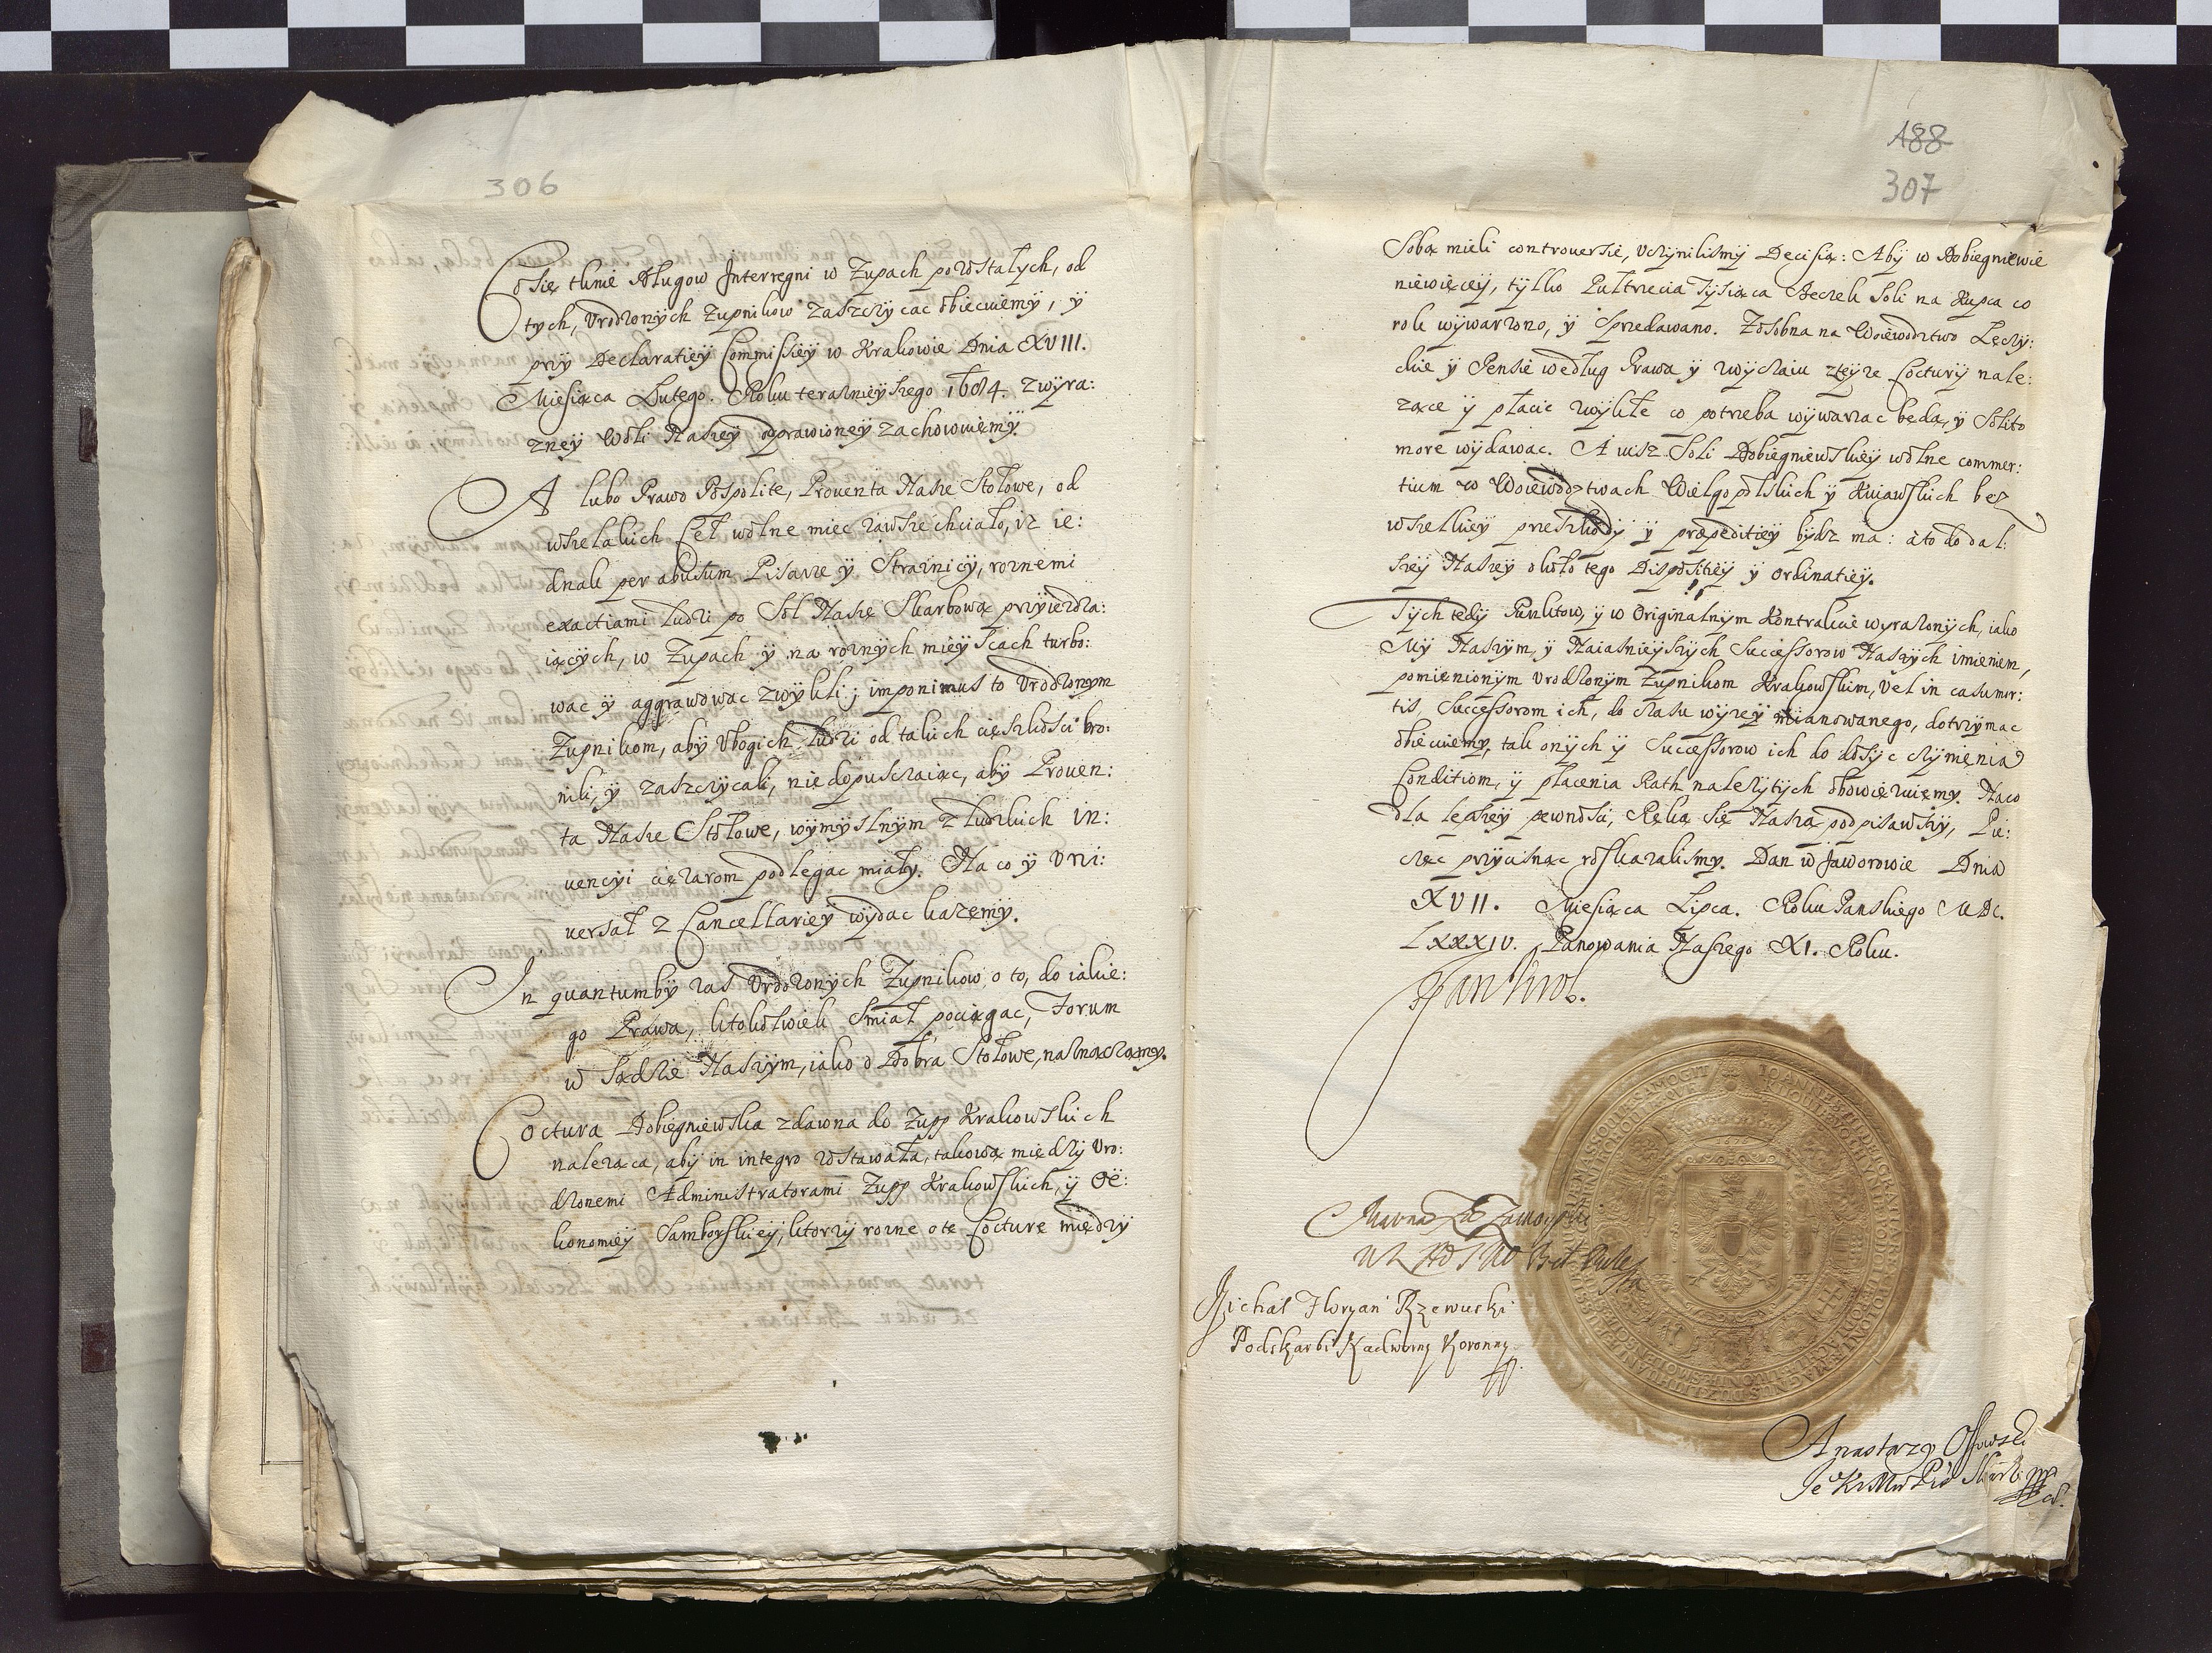 306
Co się tknie Długow Interregni w Zupach powstałych, od
tych, Vrodzonych Zupnikow zaszczycac obiecuiemÿ, ÿ
przÿ Declaratieÿ Commissieÿ w Krakowie Dnia XVIII.
Miesiąca Lutego. Roku teraznieÿszego 1684. zwÿra:
zneÿ Woli Naszeÿ odprawioneÿ zachowuięmÿ.
A lubo Prawo Pospolite, Prouenta Nasze Stołowe, od
wszelakich Ceł wolne miec zawsze chciało, iz ie:
dnak per abusum Pisarze ÿ Straznicÿ, roznemi
exactiami ludzi po Sol Naszę Skarbową przÿiezdza:
iącÿch, w Zupach ÿ na roznÿch mieÿscach turbo:
wac ÿ aggrawowac zwÿkli; imponimus to Vrodzonym
Zupnikom, abÿ Vbogich ludzi od takich cięszkosci bro:
nili, ÿ zaszczÿcali, niedopuszczaiąc, abÿ Prouen:
ta Nasze Stołowe, wÿmÿslnÿm z ludzkich in:
uencÿi cięzarom podlegac miałÿ. Na co ÿ Vni:
uersał z Cancellarieÿ wÿdac kazemÿ.
In quantumbÿ zas Vrodzonÿch Zupnikow o to, do iakie:
go Prawa, ktokolwiek smiał pociągac, Forum
w Sądzie Naszÿm, iako o Dobra Stołowe, naznaczamy.
Coctura Dobiegniewska zdawna do Zupp Krakowskich
nalezaca, abÿ in integro zostawała, takową międzÿ Vro:
dzonemi Administratorami Zupp Krakowskich, ÿ Oe:
konomieÿ Samborskieÿ, ktorzÿ rozne o tę Cocturę międzÿ
188
307
Sobą mieli controuersie, Vczÿnilismÿ Decisią: Abÿ w Dobiegniewie
niewięceÿ, tÿlko Pułtrzecia Tysiąca Beczek Soli na Kupca co
rok wÿwarzono, ÿ sprzedawano. Zosobna na Woiewodztwo Lęczÿ:
ckie ÿ Pensie według Prawa ÿ zwÿczaiu zteÿze Cocturÿ nale:
zące ÿ płacic zwÿkłe co potrzeba wÿwarzac będą, ÿ Solito
more wÿdawac. A iusz Soli Dobiegniewskieÿ wolne commer:
tium w Woiewodztwach Wielgopolskich ÿ Kuiawskich bez
wszelkieÿ przeszkodÿ ÿ præpeditieÿ bÿdz ma: a to do dal:
szeÿ Naszeÿ około tego Dispositieÿ ÿ Ordinatieÿ.
Tÿch tedÿ Punktow, ÿ w Originalnÿm Kontrakcie wyrazonÿch, iako
Mÿ Naszÿm, ÿ Naiasnieÿszÿch Successorow Naszÿch imieniem,
pomienionÿm Vrodzonÿm Zupnikom Krakowskim, Vel in casu mor:
tis, Successorom ich, do czasu wÿzeÿ mianowanego, dotrzÿmac
obiecuiemÿ, tak onÿch ÿ Successorow ich do dosÿc czÿnienia
Conditiom, ÿ płacenia Rath nalezÿtÿch obowięzuięmÿ. Na co
dla lepszeÿ pewnosci, Ręką się Naszą podpisawszÿ, Pie:
częc przÿcisnąc roskazalismÿ. Dan w Jaworowie Dnia
XVII. Miesiąca Lipca. Roku Panskiego MDC.
LXXXIV. Panowania Naszego XI. Roku.
Jan Krol.
1676
Michał Floryan Rzewuski
Podskarbi Nadworny Koronny
Anastazy